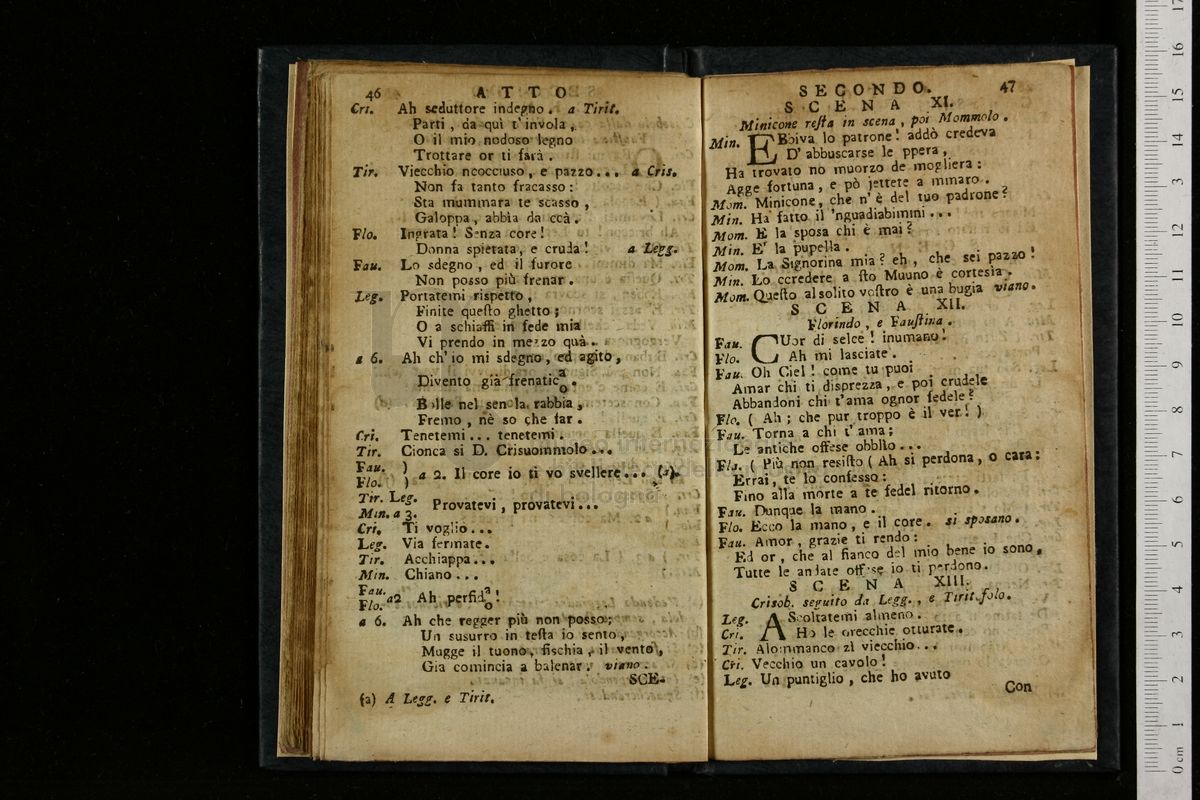 46 ATTO
Cri. Ah seduttore indegno. a Tirit.
Parti, da quì t'invola,
O il mio nodoso legno
Trottare or ti farà.
Tir. Viecchio ncocciuso, e pazzo... a Cris.
Non fa tanto fracasso:
Sta mummara te scasso,
Galoppa, abbia da ccà.
Flo. Ingrata! Senza core!
Donna spietata, e cruda! a Legg.
Fau. Lo sdegno, ed il furore
Non posso più frenar.
Leg. Portatemi rispetto,
Finite questo ghetto;
O a schiaffi in fede mia
Vi prendo in mezzo quà.
a 6. Ah ch'io mi sdegno, ed agito,
Divento già frenatic a/o.
Bolle nel seno la rabbia,
Fremo, nè so che far.
Cri. Tenetemi... tenetemi.
Tir. Cionca si D. Crisuommolo...
Fau. )
Flo. ) a 2. Il core io ti vo svellere... (a).
Tir. Leg.
Min. a 3. Provatevi, provatevi...
Cri. Ti voglio...
Leg. Via fermate.
Tir. Acchiappa...
Min. Chiano...
Fau.
Flo. a2 Ah perfid a/o!
a 6. Ah che regger più non posso;
Un susurro in testa io sento,
Mugge il tuono, fischia, il vento,
Gia comincia a balenar. viano.
SCE-
(a) A Legg. e Tirit.
SECONDO. 47
SCENA XI.
Minicone resta in scena, poi Mommolo.
Min. EBbiva lo patrone! addò credeva
D'abbuscarse le ppera,
Ha trovato no muorzo de mogliera:
Agge fortuna, e pò jettete a mmaro.
Mom. Minicone, che n'è del tuo padrone?
Min. Ha fatto il 'nguadiabimini...
Mom. E la sposa chi è mai?
Min. E' la pupella.
Mom. La Signorina mia? eh, che sei pazzo!
Min. Lo ccredere a sto Muuno è cortesia.
Mom. Questo al solito vostro è una bugia viano.
SCENA XII.
Florindo, e Faustina.
Fau. CUor di selce! inumano!
Flo. Ah mi lasciate.
Fau. Oh Ciel! come tu puoi
Amar chi ti disprezza, e poi crudele
Abbandoni chi t'ama ognor fedele?
Flo. ( Ah; che pur troppo è il ver! )
Fau. Torna a chi t'ama;
Le antiche offese obblio...
Flo. ( Più non resisto ( Ah si perdona, o cara:
Errai, te lo confesso:
Fino alla morte a te fedel ritorno.
Fau. Dunque la mano.
Flo. Ecco la mano, e il core. si sposano.
Fau. Amor, grazie ti rendo:
Ed or, che al fianco del mio bene io sono,
Tutte le andate offese io ti perdono.
SCENA XIII.
Crisob. seguito da Legg., e Tirit. solo.
Leg. AScoltatemi almeno.
Cri. Ho le orecchie otturate.
Tir. Alommanco zì viecchio...
Cri. Vecchio un cavolo!
Leg. Un puntiglio, che ho avuto
Con